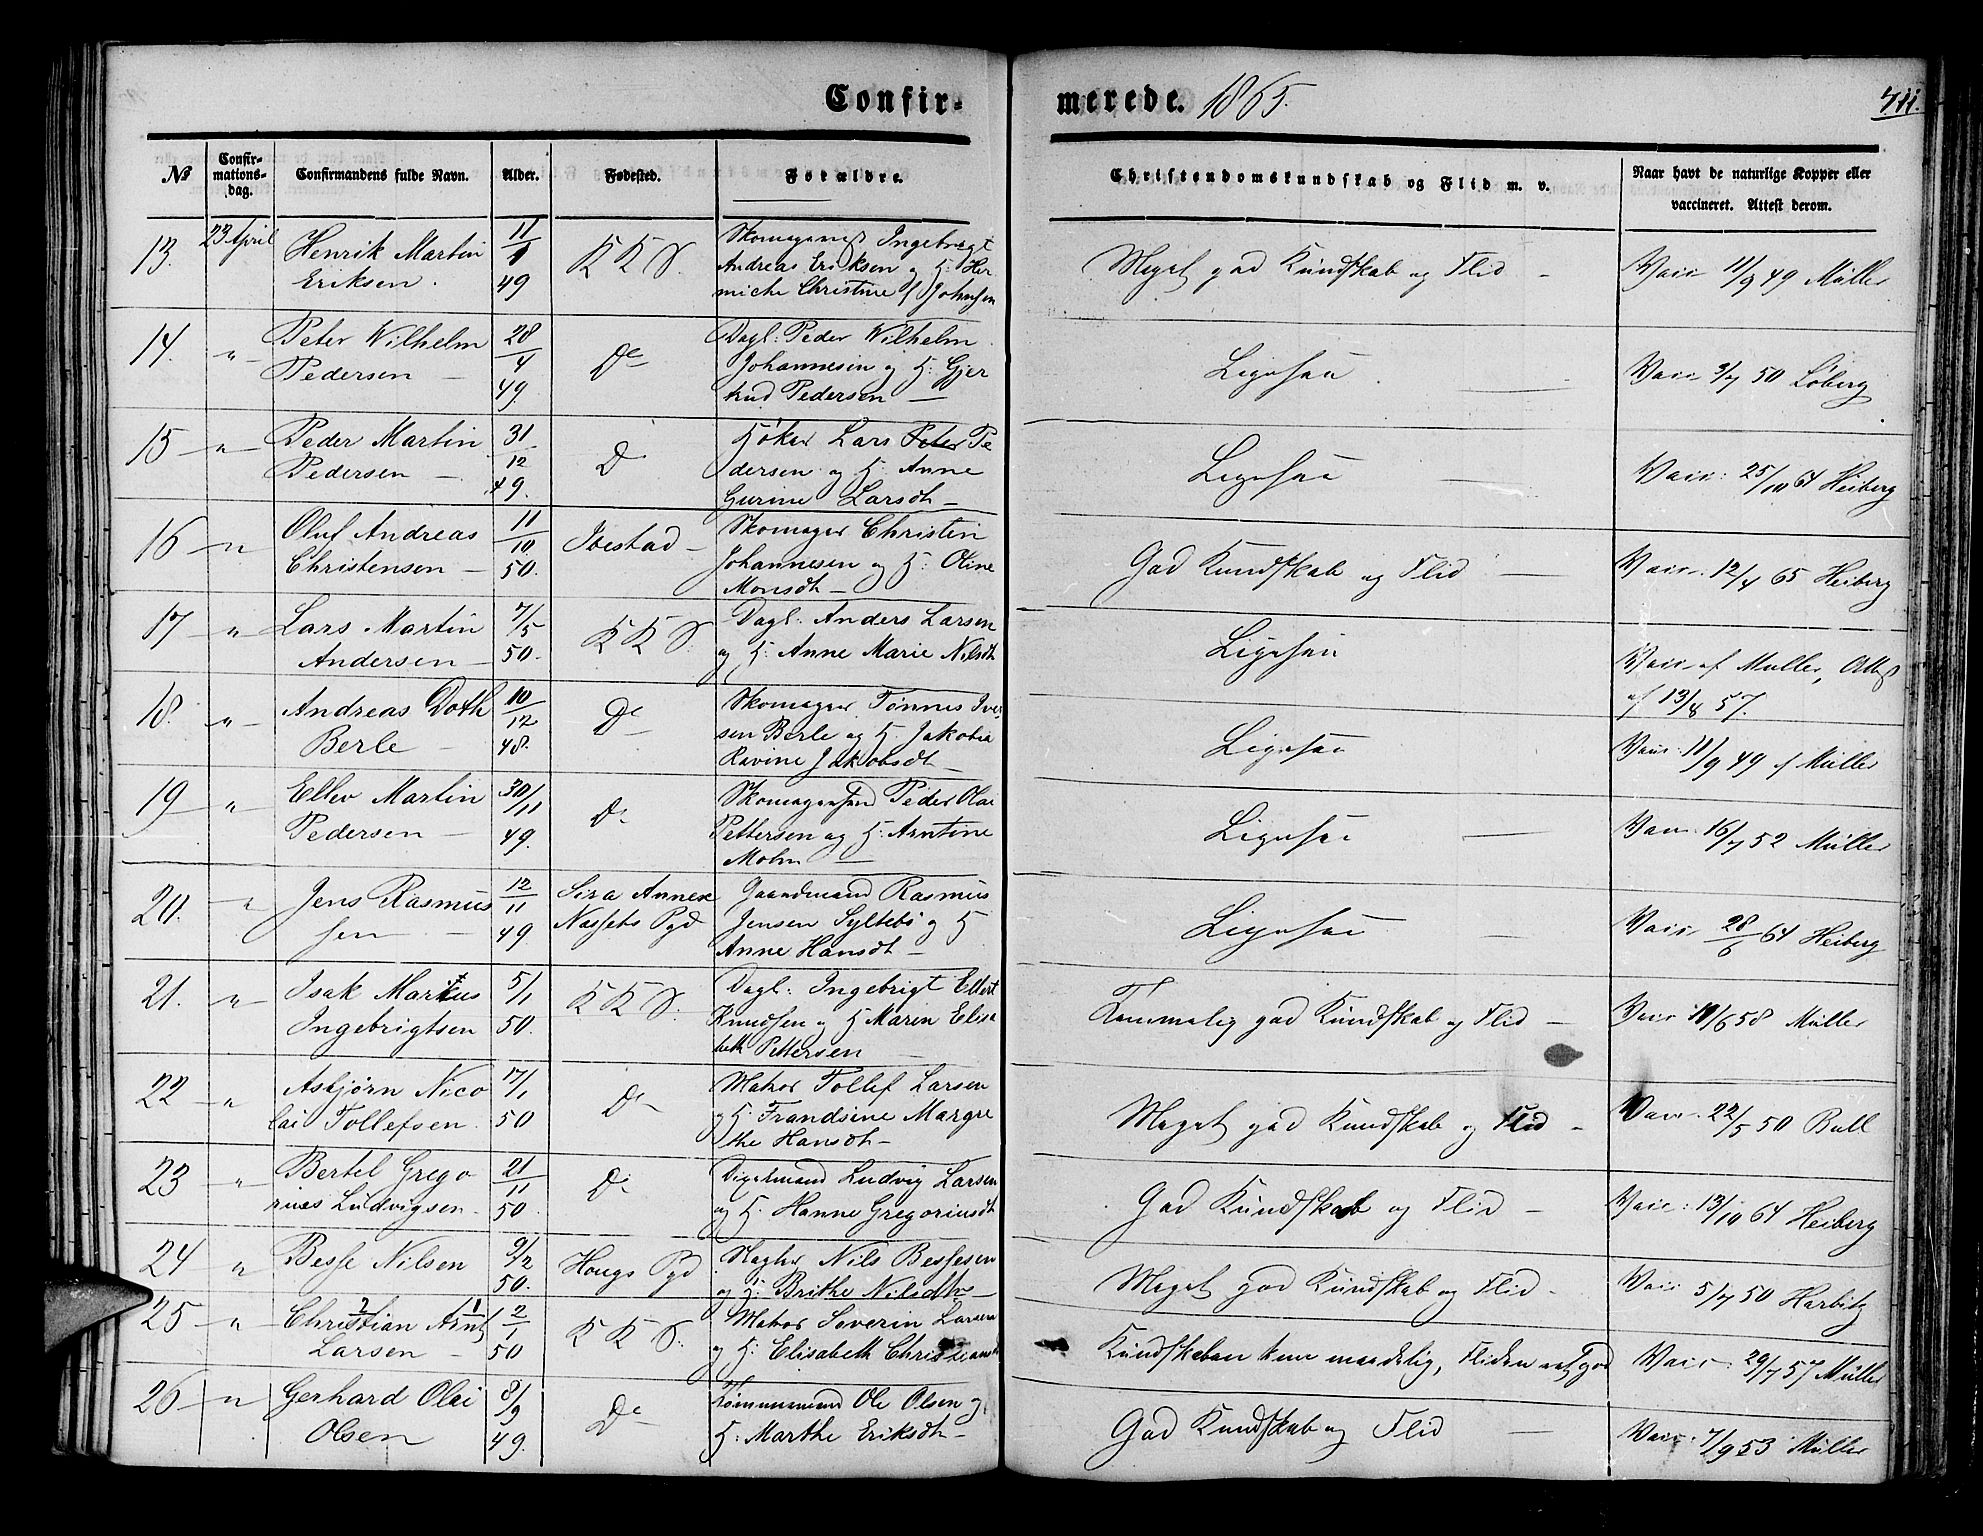 Confir-
merede. 1865.
411.
№
Confir-
mations-
dag.
Confirmandens fulde Navn.
Alder.
Fødested.
Forældre.
Christendomskundskab og Flid m. v.
Naar havt de naturlige Kopper eller
vaccineret. Attest derom.
13. 23 April Henrik Martin Eriksen. 11/1 49 K K S.
Skomagermst Ingebregt
Andreas Eriksen og H: Her
miche Christine f Johnsen
Meget god Kundskab og Flid –
Vacc 11/9 49 Müller
14. " Peter Wilhelm Pedersen – 28/4 49. Do
Dagl: Peder Wilhelm
Johannesen og H: Gjer
trud Pedersen –
Ligesaa
Vacc 3/7 50 Løberg
15 – " – Peder Martin Pedersen – 31/12 49. D
Høker Lars Peter Pe
dersen og H. Anne
Gurine Larsdt –
Ligesaa
Vacc: 25/10 64 Heiberg
16 – " Oluf Andreas Christensen – 11/10 50. Ibestad –
Skomager Christin
Johannesen og H: Oline
Monsdt –
God Kundskab og Flid –
Vacc. 12/4 65 Heiberg
17 " Lars Martin Andersen – 7/5 50. K K S.
Dagl: Anders Larsen
og H: Anne Marie Nilsdt
Ligesaa
Vacc af Müller, Attest
af 13/8 57.
18. " Andreas Doth Berle – 10/12 48. Do
Skomager Tønnes Iver
sen Berle og H. Jakobea
Ravine Jakobsdt –
Ligesaa
Vacc: 11/9 49 f Müller
19 – " Ellev Martin Pedersen – 30/11 49. Do
Peder Olai
Pettersen og H: Arntine
Mohn –
Ligesaa –
Vacc. 16/7 52 Müller
20. " Jens Rasmus sen – 12/11 49 Sira Annex Næssets Pgd
Gaardmand Rasmus
Jensen Syltebø og H
Anne Hansdt –
Ligesaa –
Vacc. 28/6 64 Heiberg
21. – " Isak Markus Ingebrigtsen 5/1 50. K K S.
Dagl: Ingebrigt Ellert
Knudsen og H Maren Elisa
beth Pettersen –
Temmelig god Kundskab og Flid –
Vacc 11/6 58 Müller
22 – " Asbjørn Nico lai Tollefsen. 17/1 50 Do
Matros Tollef Larsen
og H: Frandsine Margre
the Hansdt –
Meget god Kundskab og Flid –
Vacc. 22/5 50 Bull
23 " Bertel Grego rius Ludvigsen. 21/11 50. Do
Ludvig Larsen
og H. Hanne Gregoriusdt
God Kundskab og Flid –
Vacc: 13/10 64 Heiberg
24 " Besse Nilsen 9/2 50. Hougs Pgd
Nils Bessesen
og H: Brithe Nilsdtr –
Meget god Kundskab og Flid –
Vacc 5/7 50 Harbitz
25 – " – Christian Arnt Larsen – 2/1 50 K K S.
2 1
Matros Severin Larsen
og H: Elisabeth Christiansdt
Kundskaben kun maadelig, Fliden god
Vacc: 29/7 57 Müller
26 – " Gerhard Olai Olsen 8/9 49. Do
Tømmermand Ole Olsen og
H: Marthe Eriksdt –
God Kundskab og Flid –
Vacc: 7/9 53 Müller